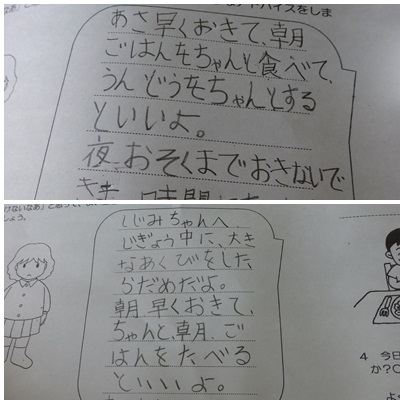 バイスをしま
あさ早くおきて、朝
ごはんをちゃんと食べて、
うんどうをちゃんとする
といいよ。
夜、おそくまでおきないで
しじみちゃんへ
じぎょう中に、大き
なあくびをした
らだめだよ。
朝、早くおきて、
ちゃんと、朝、ご
はんをたべる
といいよ。
4 今日
か?〇